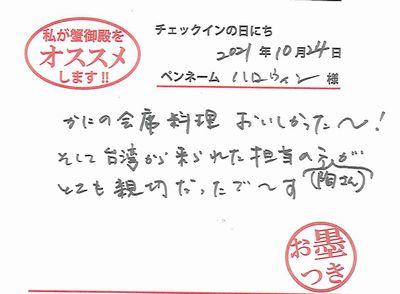 私が蟹御殿を
オススメ
します!!
チェックインの日にち
2021年10月24日
ペンネーム ハロウィン 様
かにの会席料理 おいしかった〜!
そして台湾から来られた担当の方が
(陶さん)
とても親切だったで〜す
お墨
つき